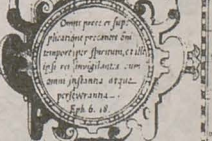 Omni prece et sup=
plicatione precantes om
tempore per Spiritum, et ille
ipsi rei invigilantes cum
omni instantia atque
perseverantia.
Eph 6. 18.